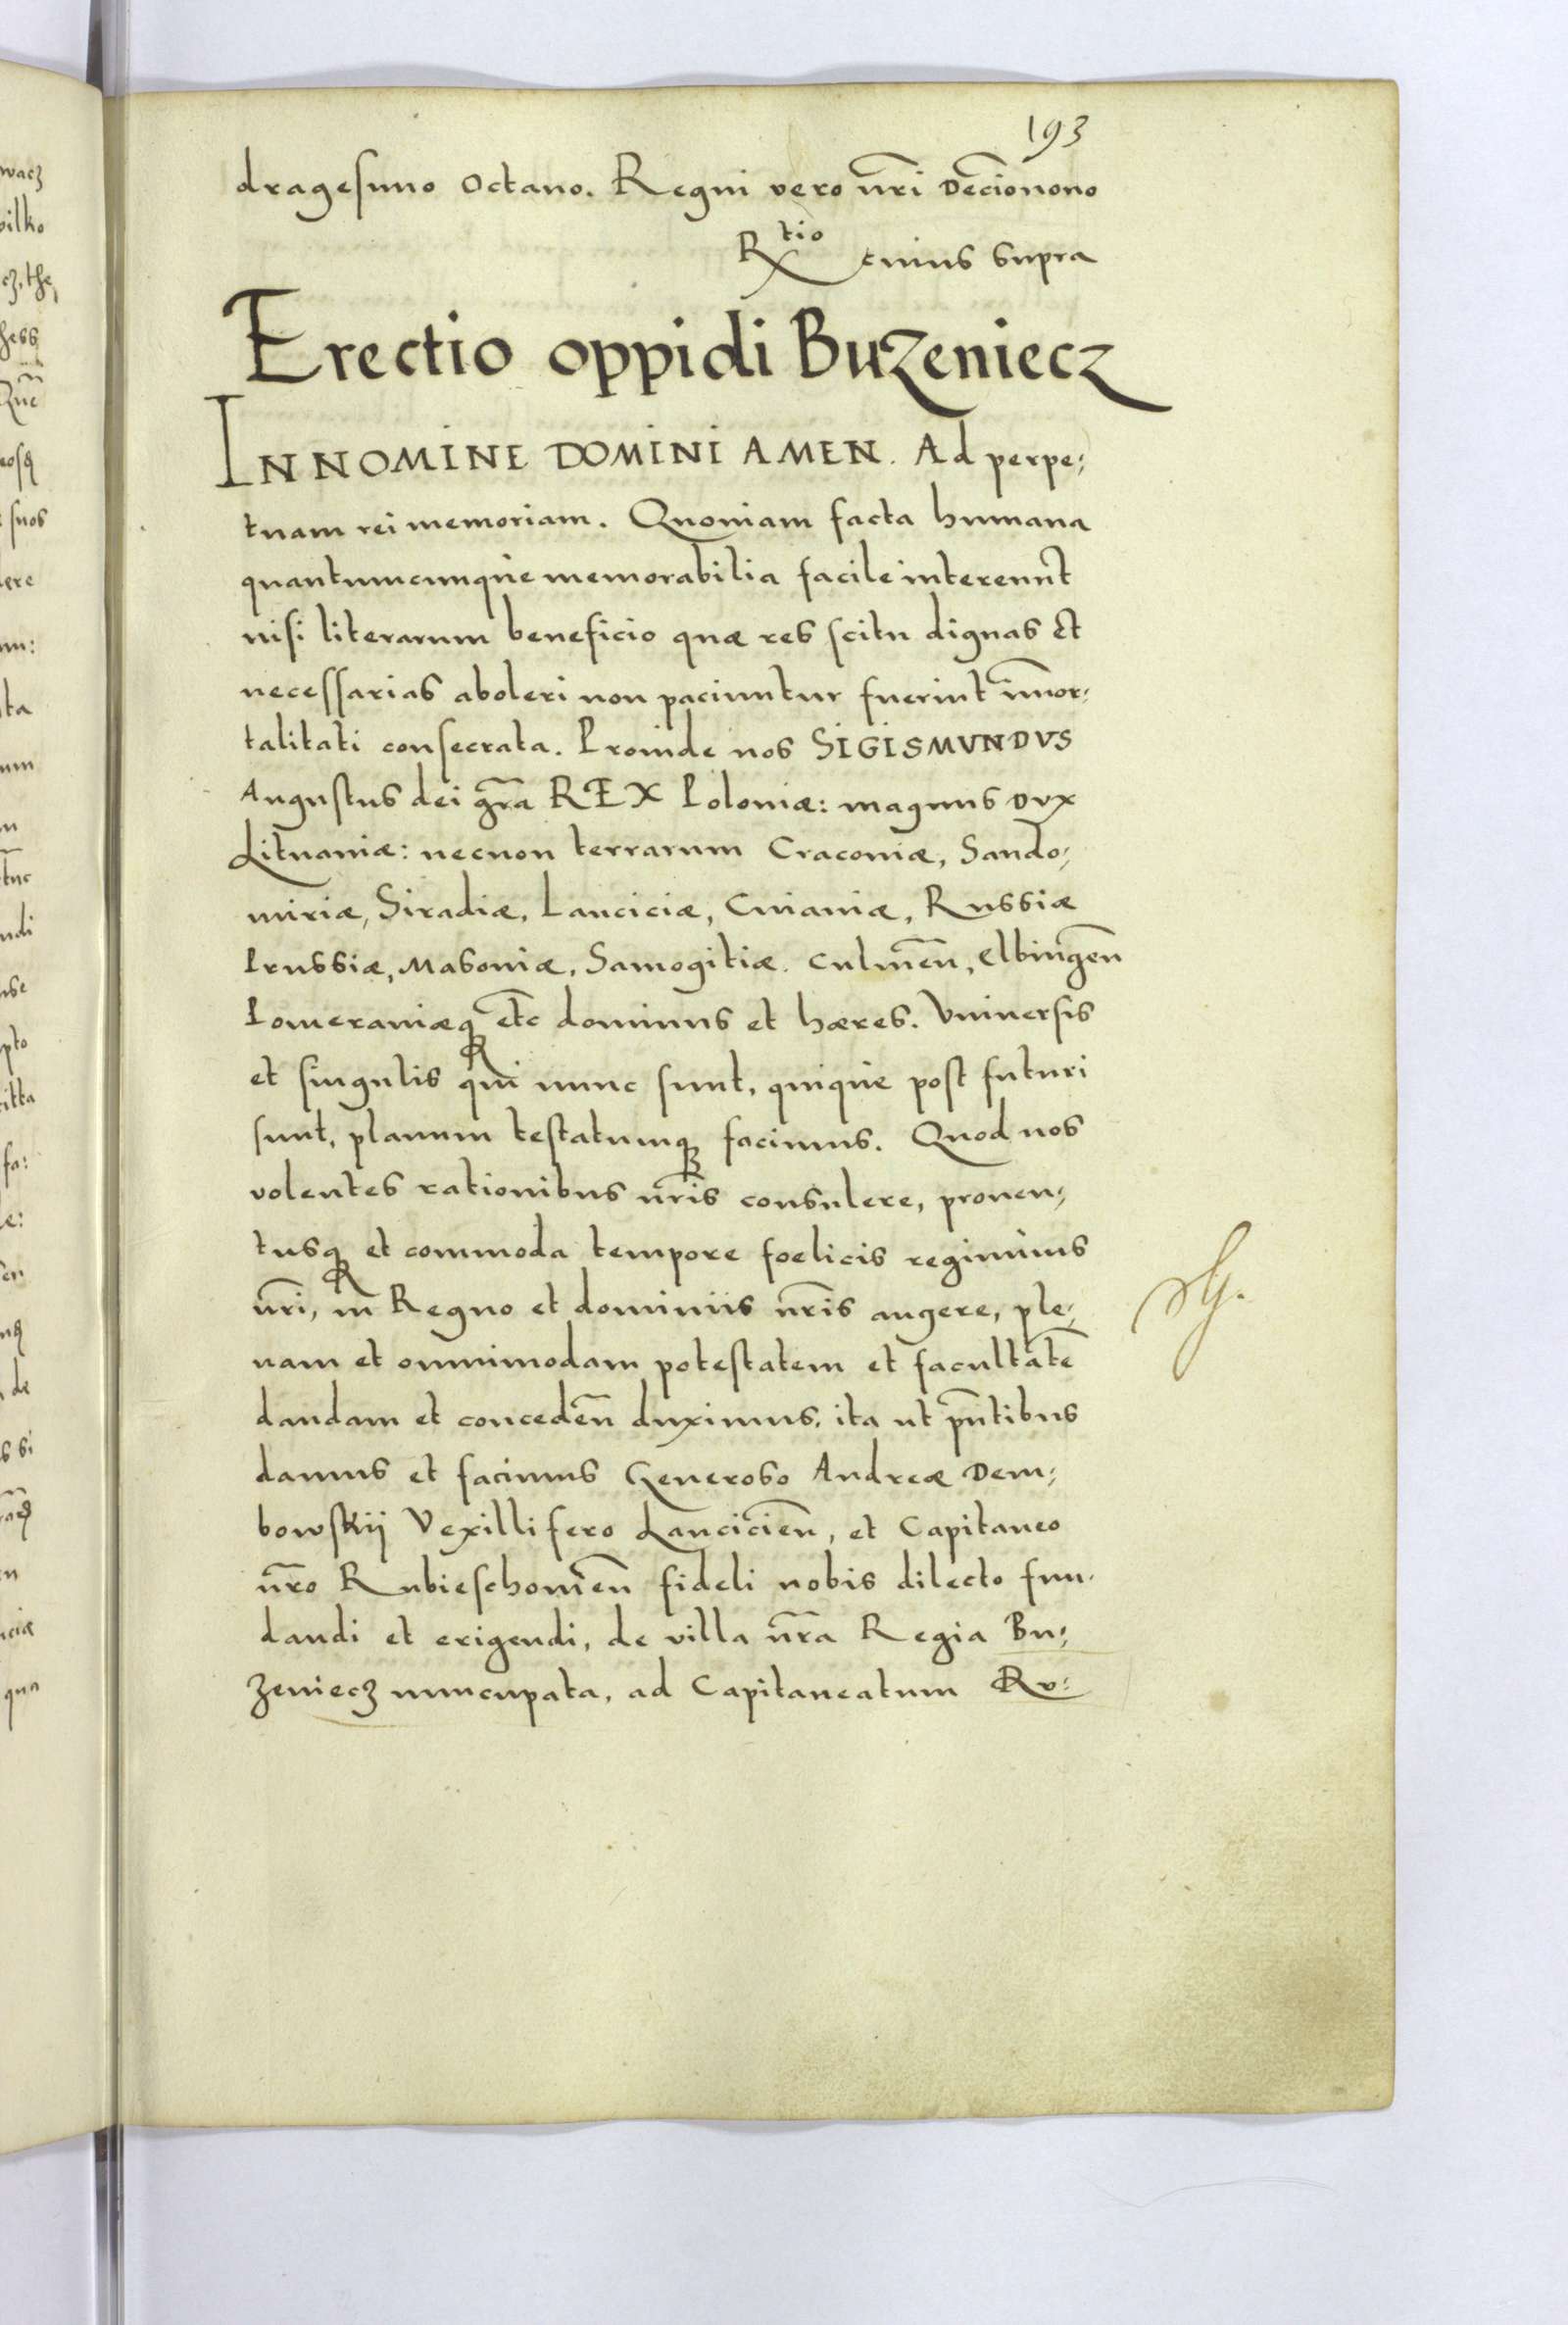 193
dragesimo Octauo. Regni vero nr̃i Deci͠onono
R^tio cuius supra
Erectio oppidi Buzeniecz
IN NOMINE DOMINI AMEN. Ad perpe;
tuam rei memoriam. Quoniam facta humana
quantumcunque memorabilia facile intereunt
nisi literarum beneficio quæ res scitu dignas et
necessarias aboleri non paciuntur fuerint im̃or;
talitati consecrata. Proinde nos SIGISMVNDVS
Augustus dei gr̃a REX Poloniæ: magnus DVX
Lituaniæ: necnon terrarum Cracouiæ, Sando;
miriæ, Siradiæ, Lanciciæ, Cuiauiæ, Russiæ
Prussiæ, Masouiæ, Samogitiæ. Culmeñ, Elbingeñ
Pomeraniæq; etc̃ dominus et hæres. Vniuersis
et singulis qui nunc sunt, quique post futuri
sunt, planum testatumq; facimus. Quod nos
volentes rationibus nr̃is consulere, prouen;
tusq; et commoda tempore foelicis regiminis
nr̃i, in Regno et dominiis nr̃is augere, ple;
nam et omnimodam potestatem et facultatẽ
dandam et concedeñ duximus. ita ut pñtibus
damus et facimus Generoso Andreæ Dem;
bowskij Vexillifero Lancicieñ, et Capitaneo
nr̃o Rubieschouieñ fideli nobis dilecto fun
dandi et erigendi, de villa nr̃a Regia Bu;
zeniecz nuncupata, ad Capitaneatum Ru: